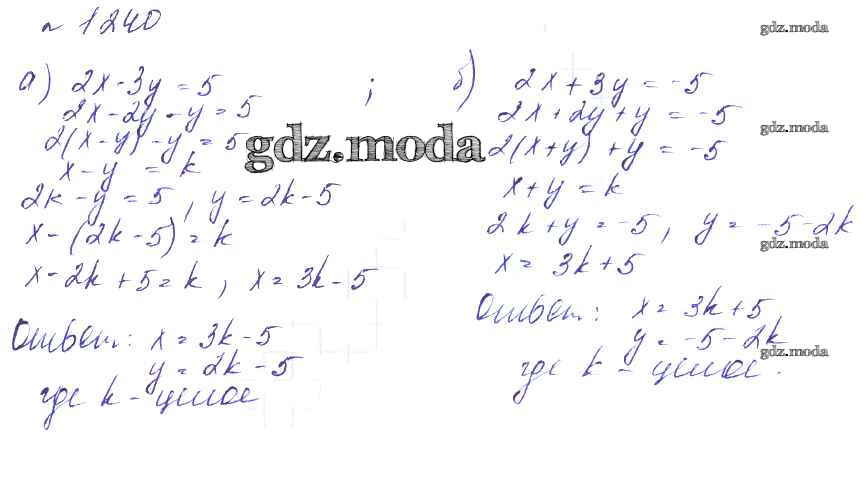 № 1240
а) 2x - 3y = 5 ;
2x - 2y - y = 5
2(x - y) - y = 5
x - y = k
2k - y = 5, y = 2k - 5
x - (2k - 5) = k
x - 2k + 5 = k, x = 3k - 5
Ответ: x = 3k - 5
y = 2k - 5
где k - целое
б) 2x + 3y = -5
2x + 2y + y = -5
2(x + y) + y = -5
x + y = k
2k + y = -5, y = -5 - 2k
x = 3k + 5
Ответ: x = 3k + 5
y = -5 - 2k
где k - целое.
gdz.moda
gdz.moda
gdz.moda
gdz.moda
gdz.moda